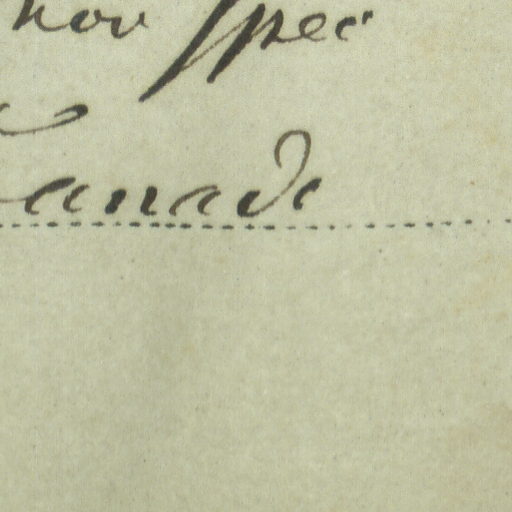 nov spec
Canade